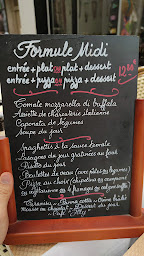 Formule Midi
entrée + plat ou plat + dessert
entrée + pizza ou pizza + dessert
Tomate mozzarella di buffala
Assiette de charcuterie italienne
Caponata de légumes
Soupe du jour
Spaghettis à la sauce tomate
Lasagnes du jour gratinées au four
Risotto du jour
Boulettes de veau (avec pâtes ou légumes)
Pizza au choix
ou végétarienne ou 4 fromages ou
Tiramisu Panna cotta Crème brûlée
Mousse au chocolat Dessert du jour
Café "Illy"